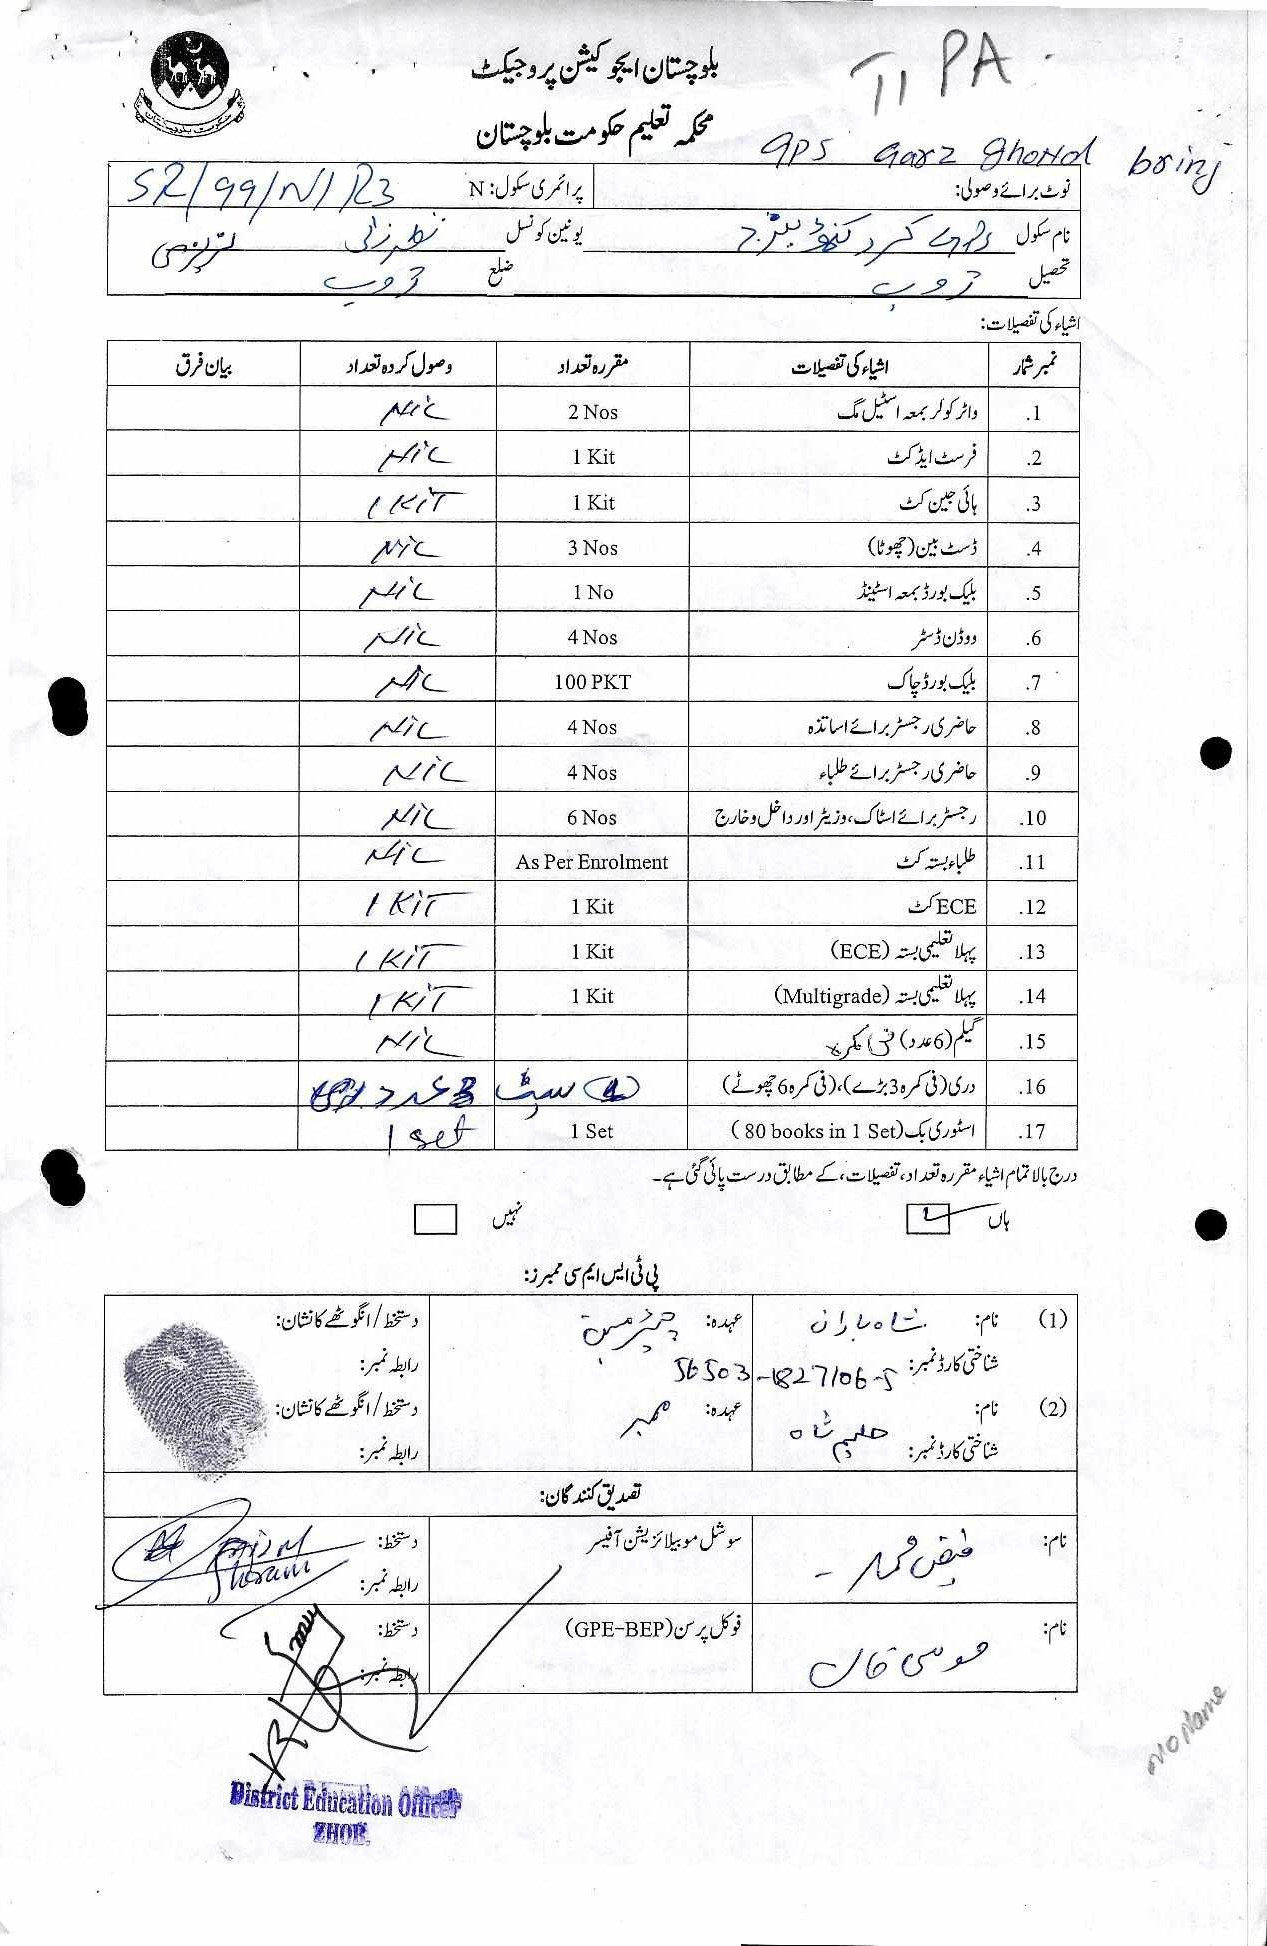 بلوچستان ایجوکیشن پروجیکٹ
TI PA
محکمہ تعلیم حکومت بلوچستان
GPS Garz Ghond brinj
نوٹ برائے وصولی: پرائمری سکول: N SR/99/N/R3
نام سکول یونین کونسل
تحصیل ژوب ضلع ژوب
اشیاء کی تفصیلات:
نمبر شمار اشیاء کی تفصیلات مقررہ تعداد وصول کردہ تعداد بیان فرق
1. واٹر کولر بمعہ اسٹیل مگ 2 Nos NiL
2. فرسٹ ایڈ کٹ 1 Kit NiL
3. ہائی جین کٹ 1 Kit 1 KiT
4. ڈسٹ بین (چھوٹا) 3 Nos NiL
5. بلیک بورڈ بمعہ اسٹینڈ 1 No NiL
6. ووڈن ڈسٹر 4 Nos NiL
7. بلیک بورڈ چاک 100 PKT NiL
8. حاضری رجسٹر برائے اساتذہ 4 Nos NiL
9. حاضری رجسٹر برائے طلباء 4 Nos NiL
10. رجسٹر برائے اسٹاک، وزیٹر اور داخل و خارج 6 Nos NiL
11. طلباء بستہ کٹ As Per Enrolment NiL
12. ECE کٹ 1 Kit 1 KiT
13. پہلا تعلیمی بستہ (ECE) 1 Kit 1 KiT
14. پہلا تعلیمی بستہ (Multigrade) 1 Kit 1 KiT
15. گیلم (6 عدد) فی کمرہ NiL
16. دری (فی کمرہ 3 بڑے)، (فی کمرہ 6 چھوٹے) سیٹ عدد
17. اسٹوری بک (80 books in 1 Set) 1 Set 1 set
درج بالا تمام اشیاء مقررہ تعداد، تفصیلات، کے مطابق درست پائی گئی ہے۔
ہاں نہیں
پی ٹی ایس ایم سی ممبرز:
(1) نام: عہدہ: چیئرمین دستخط/انگوٹھے کا نشان:
شناختی کارڈ نمبر: 56503-1827106-5 رابطہ نمبر:
(2) نام: حلیم شاہ عہدہ: ممبر دستخط/انگوٹھے کا نشان:
شناختی کارڈ نمبر: رابطہ نمبر:
تصدیق کنندگان:
نام: فیض محمد سوشل موبیلائزیشن آفیسر دستخط:
رابطہ نمبر:
نام: موسی خان فوکل پرسن (GPE-BEP) دستخط:
رابطہ نمبر:
No Name
District Education Officer
ZHOB.